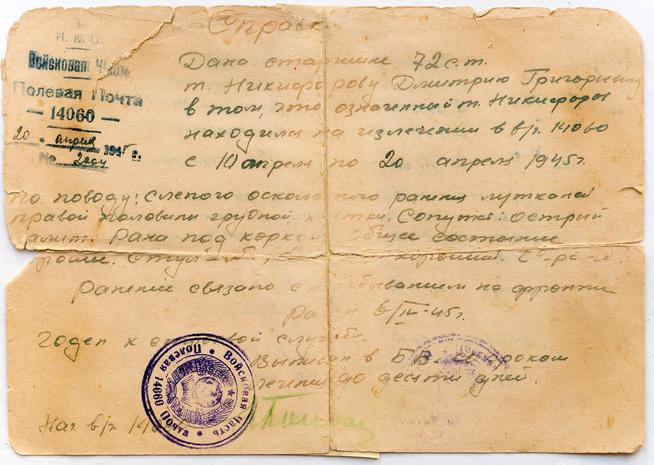 Справка
Н.К.О.
Войсковая Часть
Полевая Почта
— 14060 —
20 апреля 1945 г.
№ 2004
Дана старшине 72 с.п.
т. Никифорову Дмитрию Григорьевичу
в том, что означенный т. Никифоров
находился на излечении в в/ч 14060
с 10 апреля по 20 апреля 1945 г.
по поводу: слепого осколочного ранения мягких
правой половины грудной клетки. Сопутст: острый
Рана под коркой. Общее состояние
хороший.
Ранение связано с пребыванием на фронте
Ранен 6/IV-45 г.
годен к строевой службе
Выписан в БВ сроком
лечения до десяти дней.
Нач. в/ч 140
Войсковая часть
Полевая Почта 14060